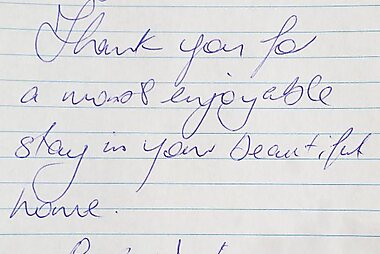 Thank you fo
a most enjoyable
stay in your beautiful
home.